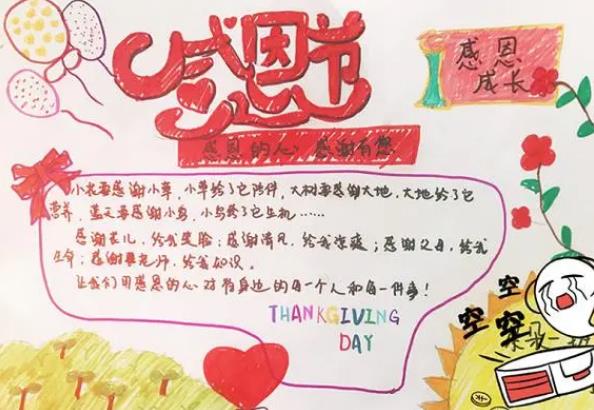 感恩节
感恩的心 感谢有您
感恩
成长
小花要感谢小草,小草给了它陪伴,大树要感谢大地,大地给了它
营养,蓝天要感谢小鸟,小鸟给了它生机……
感谢花儿,给我笑脸;感谢清风,给我凉爽;感谢父母,给我
生命;感谢老师,给我知识。
让我们用感恩的心对待身边的每一个人和每一件事!
THANKGIVING
DAY
空
空 空